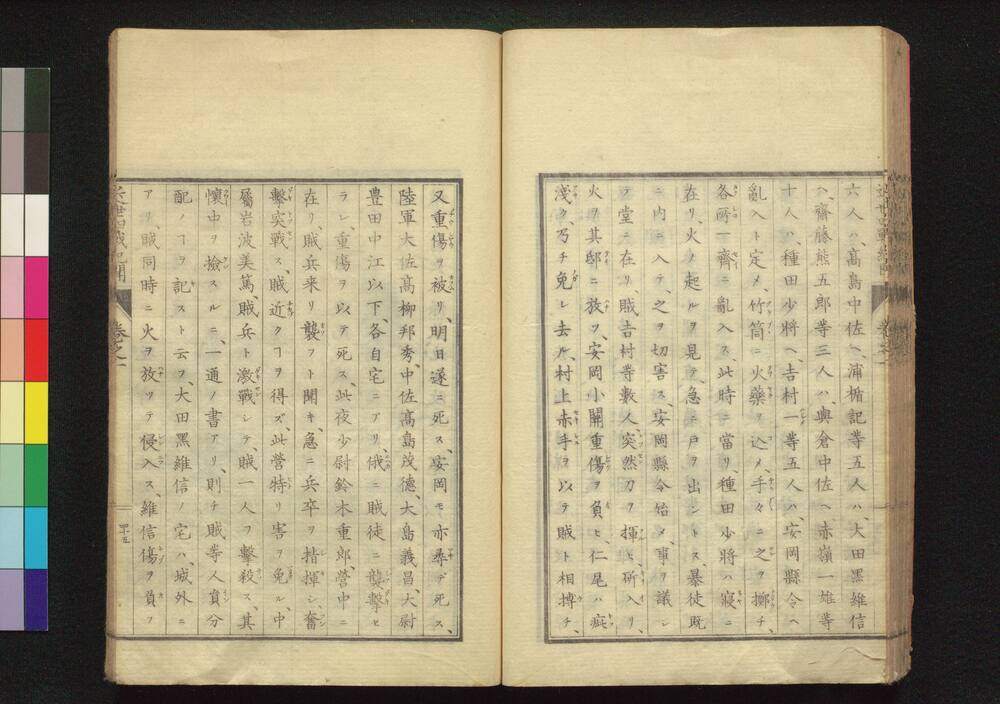 六人ハ、髙島中佐ヘ、浦楯記等五人ハ大田黑維信
ヘ、齋藤熊五郎等三人ハ、與倉中佐ヘ、赤嶺一雄等
十人ハ、種田少將ヘ、吉村一等五人ハ、安岡縣令ヘ
亂入ト定メ、竹筒ニ火藥ヲ込メ、手々ニ之ヲ擲チ、
各所一齊ニ亂入ス、此時ニ當リ、種田少將ハ寢ニ
在リ、火ノ起ルヲ見テ、急ニ戸ヲ出ントス、暴徒既
ニ内ニ入テ、之ヲ切害ス、安岡縣令始メ、事ヲ議シ
テ堂ニ在リ、賊吉村等數人、突然刀ヲ揮ヒ、斫入リ、
火ヲ其邸ニ放ツ、安岡小關重傷ヲ負ヒ、仁尾ハ疵
淺ク、乃チ免レ去ル、村上赤手ヲ以テ賊ト相搏チ、
又重傷ヲ被リ、明日遂ニ死ス、安岡モ亦尋デ死ス、
陸軍大佐髙柳邦秀、中佐髙島茂德、大島義昌、大尉
豊田中江以下、各自宅ニアリ、俄ニ賊徒ニ襲擊セ
ラレ、重傷ヲ以テ死ス、此夜少尉鈴木重郎、營中ニ
在リ、賊兵来リ襲フト聞キ、急ニ兵卒ヲ指揮シ、奮
擊突戰ス、賊近クヿヲ得ズ、此營特リ害ヲ免ル、中
屬岩波美篤、賊兵ト激戰シテ、賊一人ヲ擊殺ス、其
懷中ヲ撿スルニ、一通ノ書アリ、則チ賊等人員分
配ノヿヲ記スト云フ、大田黑維信ノ宅ハ、城外ニ
アリ、賊同時ニ火ヲ放ツテ侵入ス、維信傷ヲ負フ
卷之一
四十五